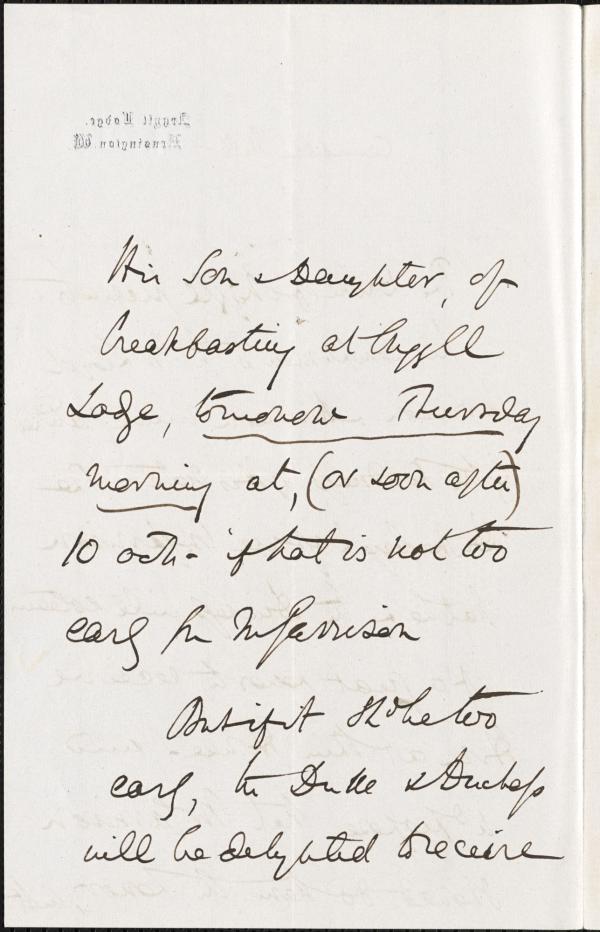 Argyll Lodge.
Kensington. W
His Son & Daughter, of
breakfasting at Argyll
Lodge, tomorrow Thursday
morning at, (or soon after)
10 o'ck - if that is not too
early for Mr Garrison
But if it shd be too
early, the Duke & Duchess
will be delighted to receive